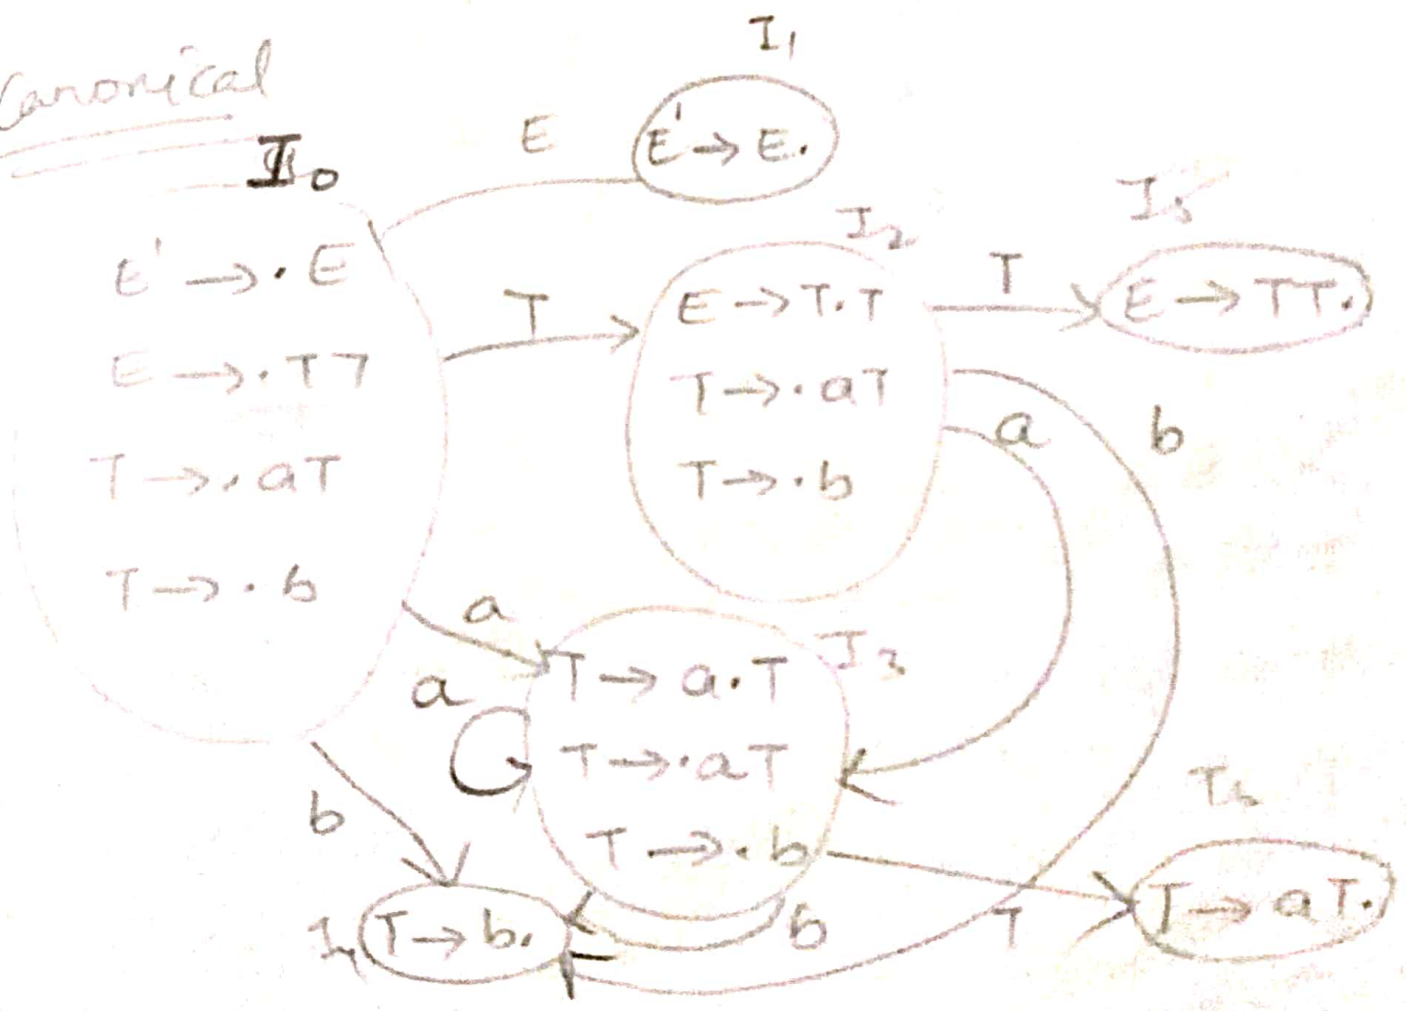 Canonical
I₀
E' → . E
E → . TT
T → . aT
T → . b
E
I₁
E' → E.
T
I₂
E → T.T
T → . aT
T → . b
T
I₅
E → TT.
a
b
a
a
I₃
T → a.T
T → . aT
T → . b
b
b
T
T → aT.
I₄
T → b.